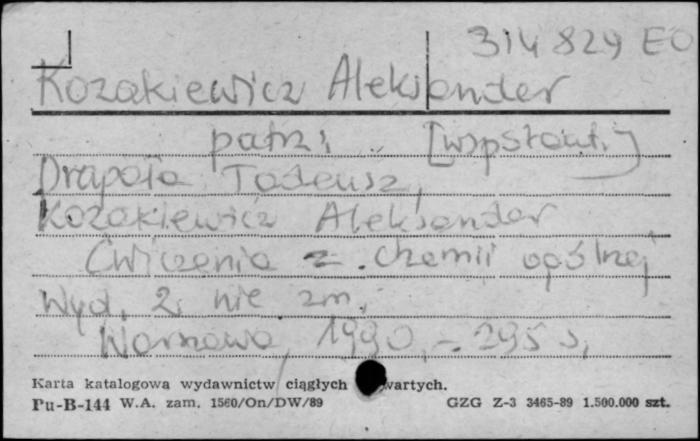 314 829 EO
Kozakiewicz Aleksander
patrz: [współaut.]
Drapała Tadeusz,
Kozakiewicz Aleksander
Ćwiczenia z chemii ogólnej
Wyd. 2 nie zm.
Warszawa, 1990, - 295 s,
Karta katalogowa wydawnictw ciągłych wartych.
Pu-B-144 W.A. zam. 1560/On/DW/89 GZG Z-3 3465-89 1.500.000 szt.